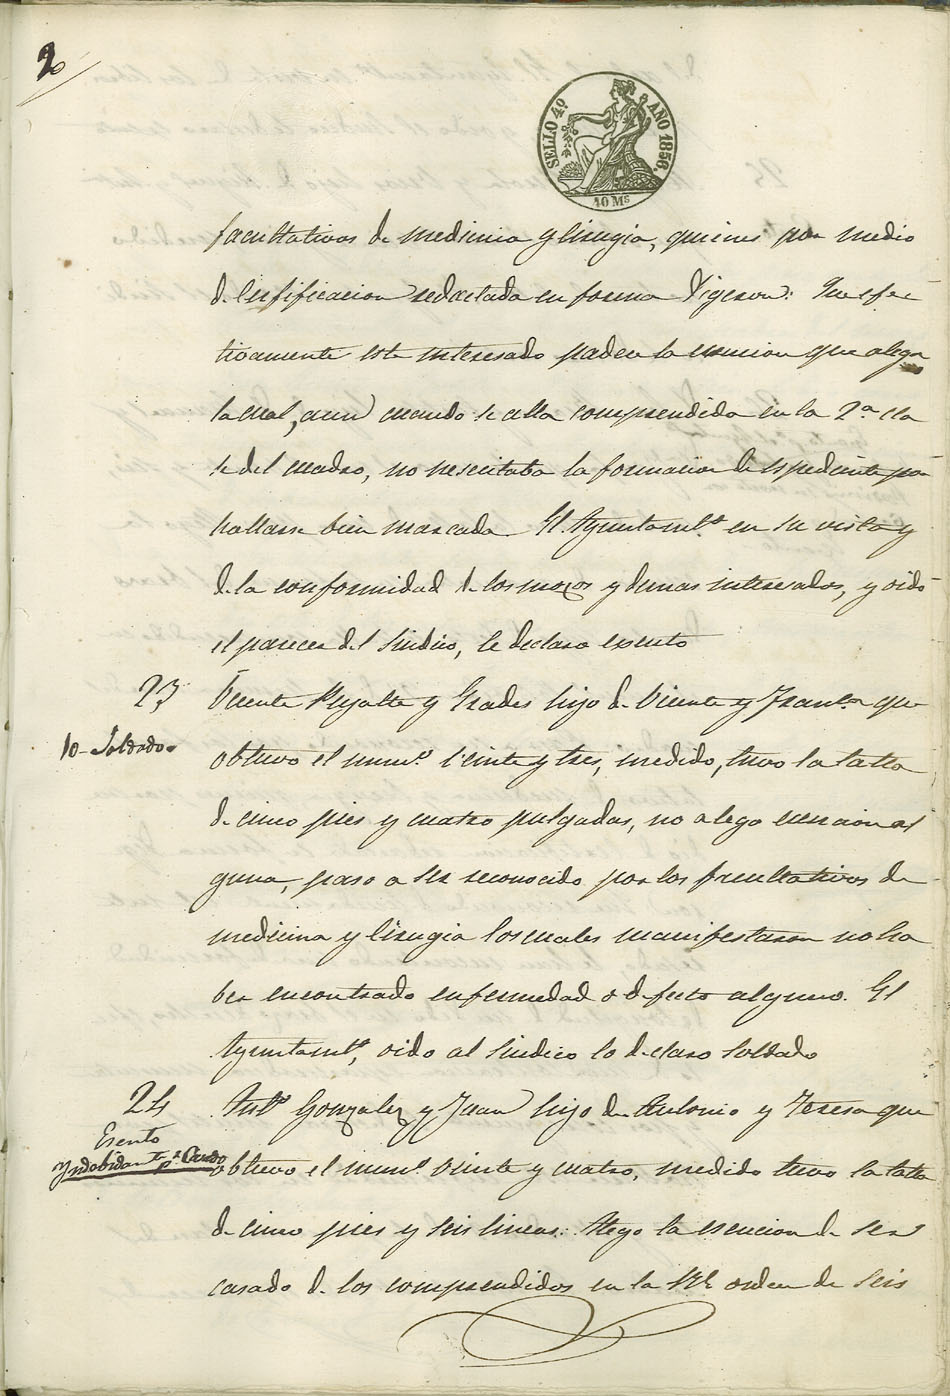 2
SELLO 4º AÑO 1856.
40 Ms
facultativos de medicina y Cirugia, quienes por medio
de Certificacion redactada en forma Digeron: Que efec
tivamente este interesado padece la esencion que alega
la cual, aun cuando se alla comprendida en la 2ª cla
se del cuadro, no nesecitaba la formacion de espediente por
hallarse bien marcada. El Ayuntamtº en su vista y
de la conformidad de los mozos y demas interesados, y oido
el parecer del Sindico, le declaro esento
23 Vicente y Grades hijo de Vicente y Franca que
10 - Soldado
obtuvo el numº veinte y tres, medido, tuvo la talla
de cinco pies y cuatro pulgadas, no alego esencion al
guna, paso a ser reconocido por los facultativos de
medicina y Cirugia los cuales manifestaron no ha
ber encontrado enfermedad o defecto alguno. El
Ayuntamtº, oido al Sindico lo declaro Soldado
24 Antº Gonzalez y Juan hijo de Antonio y Teresa que
Esento
obtuvo el numº veinte y cuatro, medido tuvo la talla
de cinco pies y seis lineas: Alego la esencion de ser
casado de los comprendidos en la Rl orden de seis